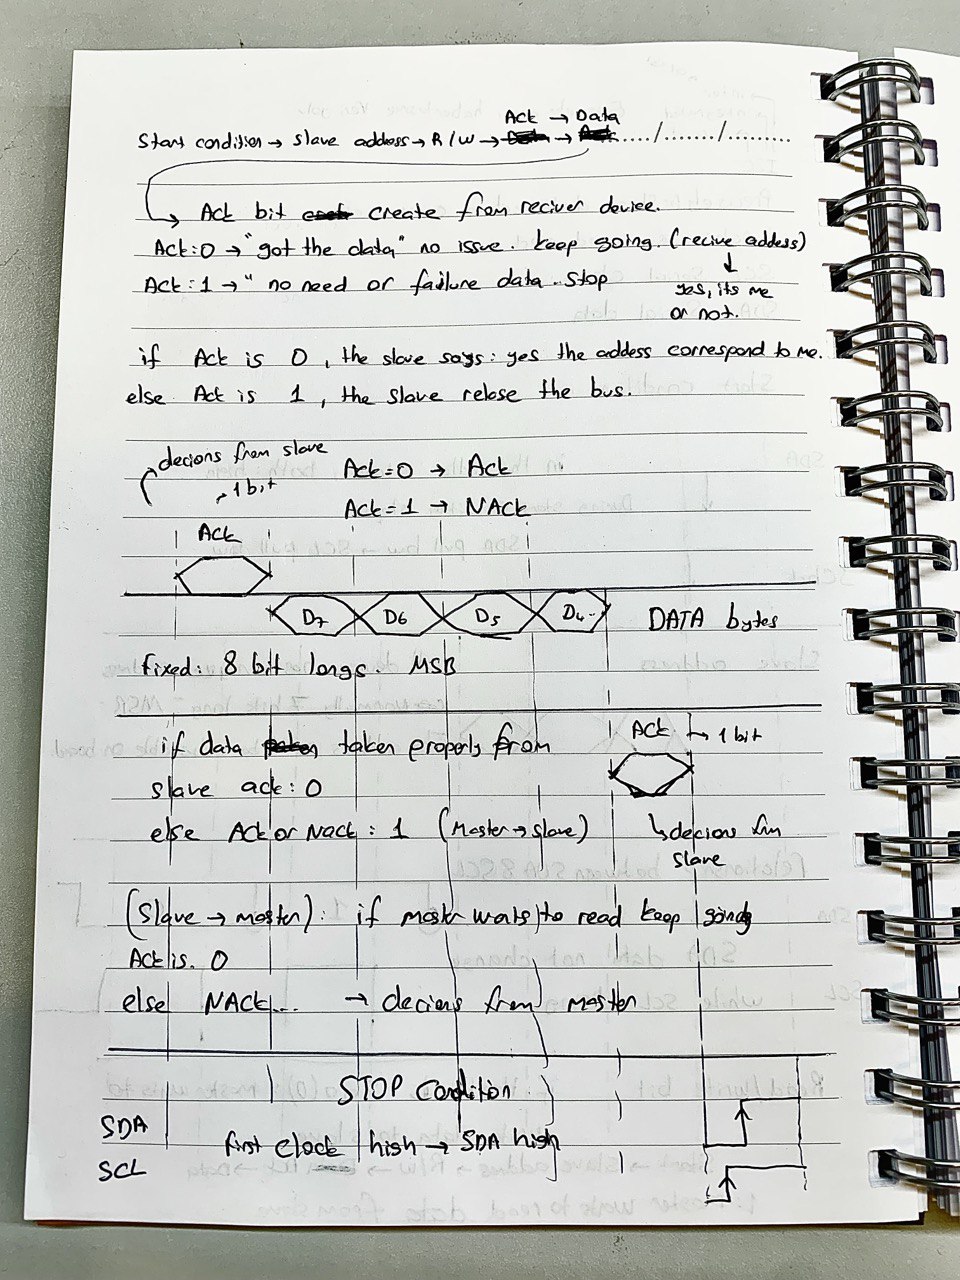 Ack → Data
Start condition → slave address → R/W → → ...../......./.........
Ack bit create from reciver device.
Ack:0 → "got the data" no issue. keep going. (recive addess)
Ack:1 → " no need or failure data. stop
yes, its me
or not.
if Ack is 0, the slave says: yes the addess correspond to me.
else Ack is 1, the slave relose the bus.
decions from slave
1 bit
Ack=0 → Ack
Ack=1 → NAck
Ack
D7 D6 D5 D4 DATA bytes
fixed: 8 bit longs. MSB
if data taken properly from
Ack → 1 bit
slave ack: 0
else Ack or Nack: 1 (Master → slave)
decions frm
slave
(Slave → master): if master wants to read keep going
Ack is. 0
else NACK... → decions from master
STOP Condition
SDA
first clock high → SDA high
SCL